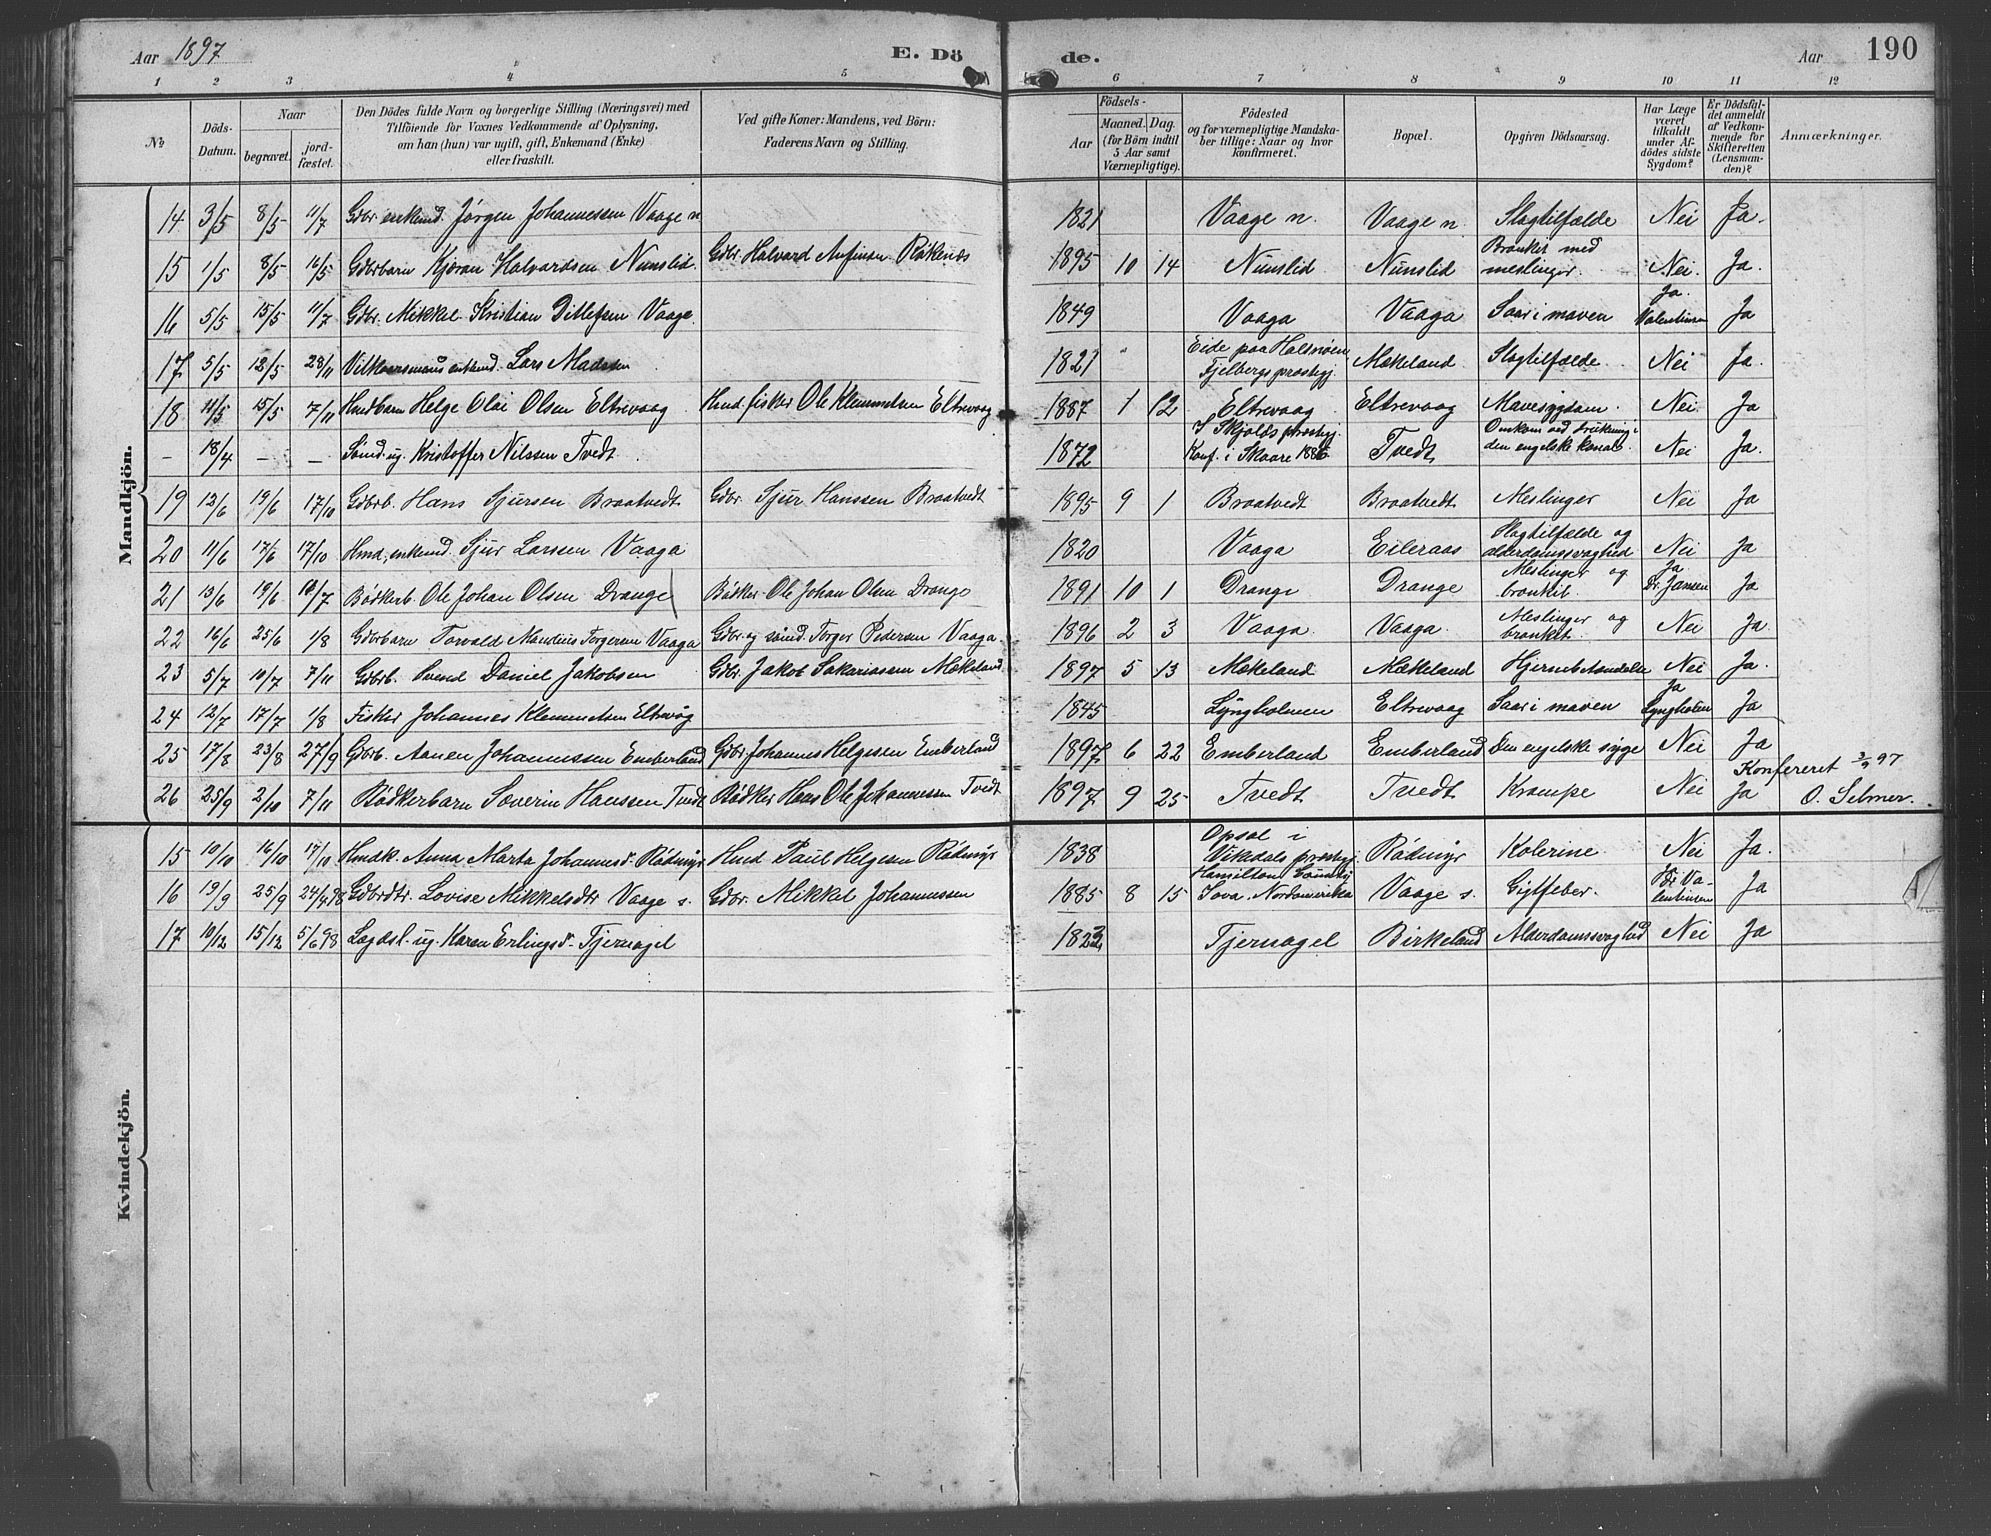 Aar 1897 E. Dö de. Aar 190
1 2 3 4 5 6 7 8 9 10 11 12
No Döds-Datum. Naar begravet. jord-fæstet. Den Dödes fulde Navn og borgerlige Stilling (Næringsvei) med Tilföiende for Voxnes Vedkommende af Oplysning, om han (hun) var ugift, gift, Enkemand (Enke) eller fraskilt. Ved gifte Koner: Mandens, ved Börn: Faderens Navn og Stilling. Födsels- Aar Maaned. Dag. (for Börn indtil 5 Aar samt Værnepligtige). Födested og for værnepligtige Mandska-ber tillige: Naar og hvor konfirmeret. Bopæl. Opgiven Dödsaarsag. Har Læge været tilkaldt under Af-dödes sidste Sygdom? Er Dödsfal-det anmeldt af Vedkom-mende for Skifteretten (Lensman-den)? Anmærkninger.
Mandkjön.
14 3/5 8/5 11/7 Gdbr. enkemd. Jørgen Johannessen Vaage n 1821 Vaage n. Vaage n Slagtilfælde Nei Ja.
15 1/5 8/5 16/5 Gdbrbarn Kjøran Halvardsen Nunslid Gdbr. Halvard Anfinsen Røkenæs 1895 10 14 Nunslid Nunslid Bronkit med meslinger Nei. Ja.
16 5/5 15/5 11/7 Gdbr. Mikkel Kristian Ditlefsen Vaage. 1849 Vaaga Vaaga Saar i maven Ja. Valentinsen Ja
17 5/5 12/5 28/11 Vilkaarsmand enkemd. Lars Madssen 1821 Eide paa Halsnøen, Fjelbergs prestegj. Mækeland Slagtilfælde Nei Ja.
18 11/5 15/5 7/11 Hmdbarn Helge Olai Olsen Eltrevaag Hmd. fisker Ole Klemmetsen Eltrevaag 1887 1 12 Eltrevaag Eltrevaag Mavesygdom. Nei Ja
– 18/4 – – Sømd. ug. Kristoffer Nilssen Tvedt 1872 I Skjolds prestegj. Konf. i Skaare 1886 Tvedt Omkom ved drukning i den engelske kanal. Nei Ja.
19 12/6 19/6 17/10 Gdbrb. Hans Sjursen Braatvedt Gdbr. Sjur Hanssen Braatvedt 1895 9 1 Braatvedt Braatvedt Meslinger Nei Ja
20 11/6 17/6 17/10 Hmd, enkemd. Sjur Larssen Vaaga 1820 Vaaga Eileraas Slagtilfælde og alderdomssvaghed Nei Ja
21 13/6 19/6 18/7 Bødkerb. Ole Johan Olsen Drange Bødker Ole Johan Olsen Drange 1891 10 1 Drange Drange Meslinger og bronkit. Ja Dr. Jansen Ja
22 16/6 25/6 1/8 Gdbrbarn Torvald Mandius Torgersen Vaaga Gdbr. og smed. Torger Pedersen Vaaga. 1896 2 3 Vaaga. Vaaga. Meslinger og bronkit. Nei Ja.
23 5/7 10/7 7/11 Gdbrb. Svend Daniel Jakobsen Gdbr. Jakob Sakariassen Mækeland 1897 5 13 Mækeland Mækeland Hjernebetændelse Nei Ja.
24 12/7 17/7 1/8 Fisker Johannes Klemmetsen Eltrevåg 1845 Lyngholmen Eltrevaag Saar i maven Ja Lyngholm Ja
25 17/8 23/8 27/9 Gdbrb. Aanen Johannessen Emberland Gdbr. Johannes Helgesen Emberland 1897 6 22 Emberland Emberland Den engelske syge Nei Ja
Konfereret 3/9 97
26 25/9 2/10 7/11 Bødkerbarn Sæverin Hanssen Tvedt Bødker Hans Ole Johannessen Tvedt 1897 9 25 Tvedt Tvedt Krampe Nei Ja O. Selmer.
Kvindekjön.
15 10/10 16/10 17/10 Hmdk. Anna Marta Johannesdr. Rødmyr Hmd Paul Helgesen Rødmyr 1838 Opsal i Vikedals prestegj. Rødmyr Kolerine Nei Ja.
16 19/9 25/9 24/4 98 Gdbrdtr. Lovise Mikkelsdtr Vaage s. Gdbr. Mikkel Johannessen 1885 8 15 Hamilton County Iova. Nordamerika Vaage s. Gigtfeber. Valentinsen Ja
17 10/12 15/12 5/6 98 Lægdsl. ug. Karen Erlingsdr. Tjernagel 1823 Tjernagel Birkeland Alderdomssvaghed Nei Ja